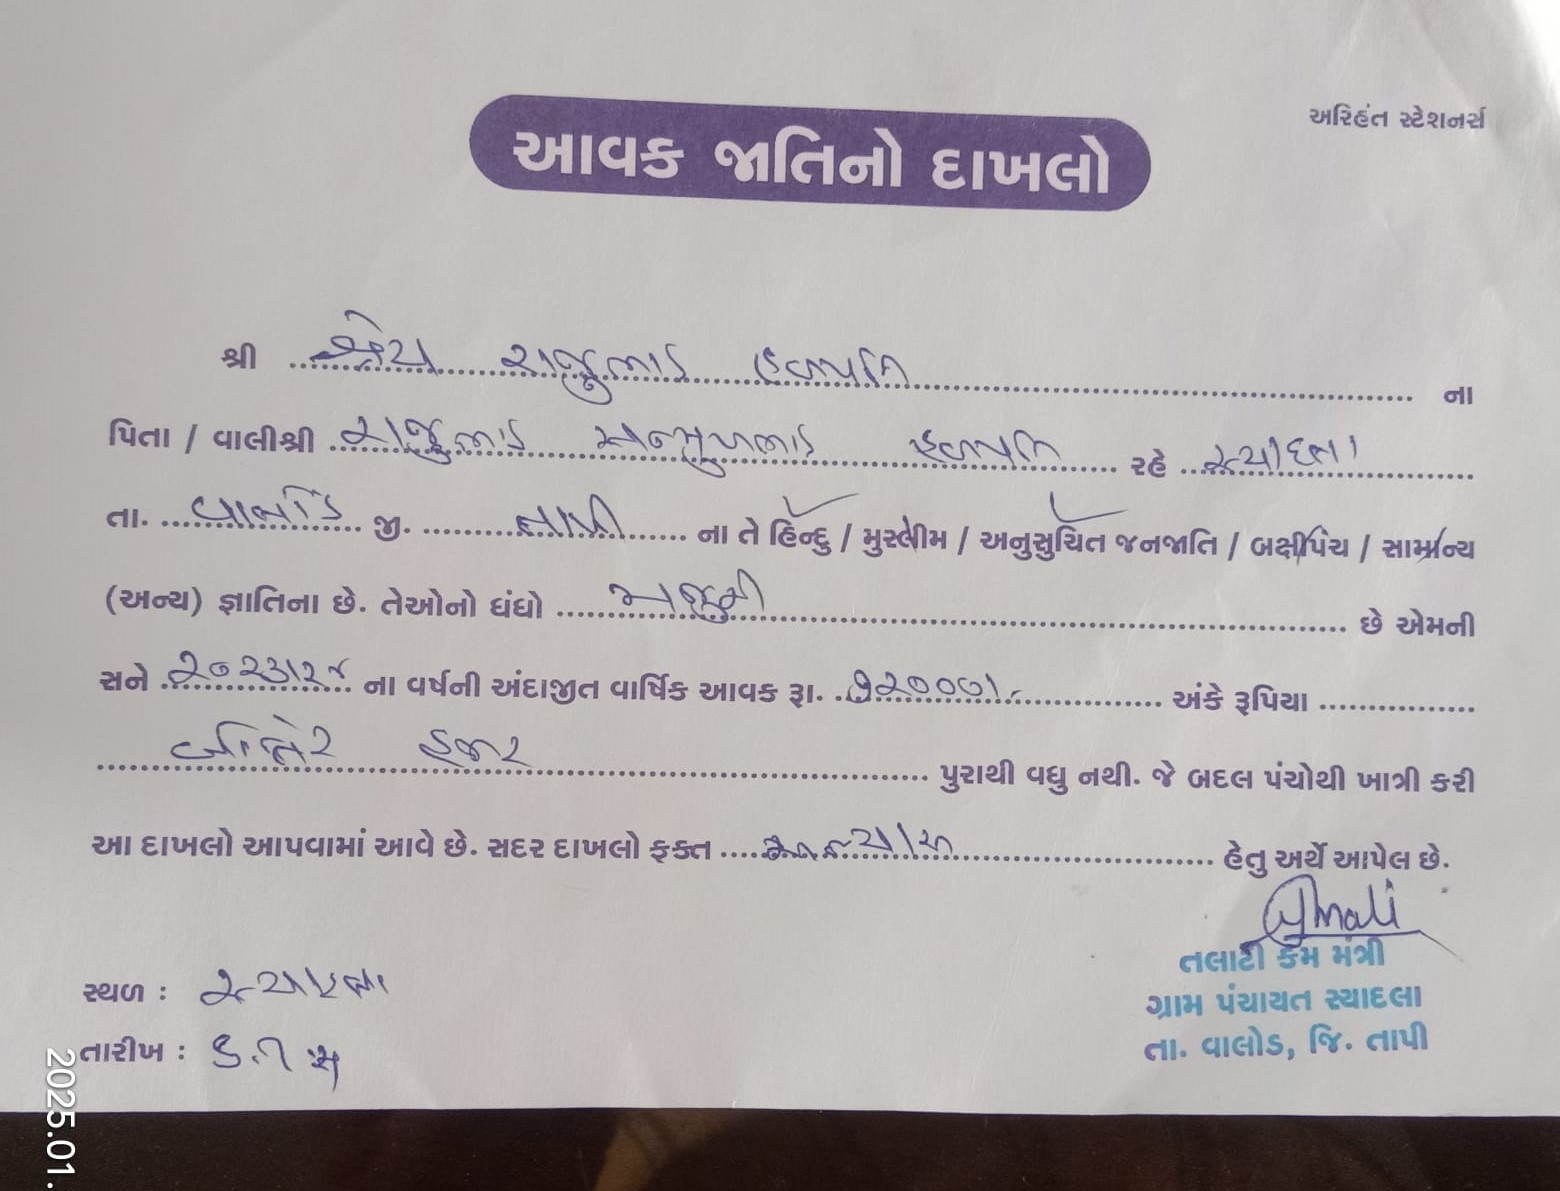 અરિહંત સ્ટેશનર્સ
આવક જાતિનો દાખલો
શ્રી ........ રાજુભાઈ હળપતિ ........ ના
પિતા / વાલીશ્રી ........ રાજુભાઈ મનસુખભાઈ હળપતિ ........ રહે ........ સ્યાદલા
તા. ........ વાલોડ ........ જી. ........ તાપી ........ ના તે હિન્દુ / મુસ્લીમ / અનુસુચિત જનજાતિ / બક્ષીપંચ / સામાન્ય
(અન્ય) જ્ઞાતિના છે. તેઓનો ધંધો ........ મજુરી ........ છે એમની
સને ૨૦૨૩/૨૪ ના વર્ષની અંદાજીત વાર્ષિક આવક રૂા. ૭૨૦૦૦/- ........ અંકે રૂપિયા ........
........ બોંતેર હજાર ........ પુરાથી વધુ નથી. જે બદલ પંચોથી ખાત્રી કરી
આ દાખલો આપવામાં આવે છે. સદર દાખલો ફક્ત ........ અભ્યાસ ........ હેતુ અર્થે આપેલ છે.
તલાટી કમ મંત્રી
ગ્રામ પંચાયત સ્યાદલા
તા. વાલોડ, જિ. તાપી
સ્થળ : સ્યાદલા
તારીખ :
2025.01.